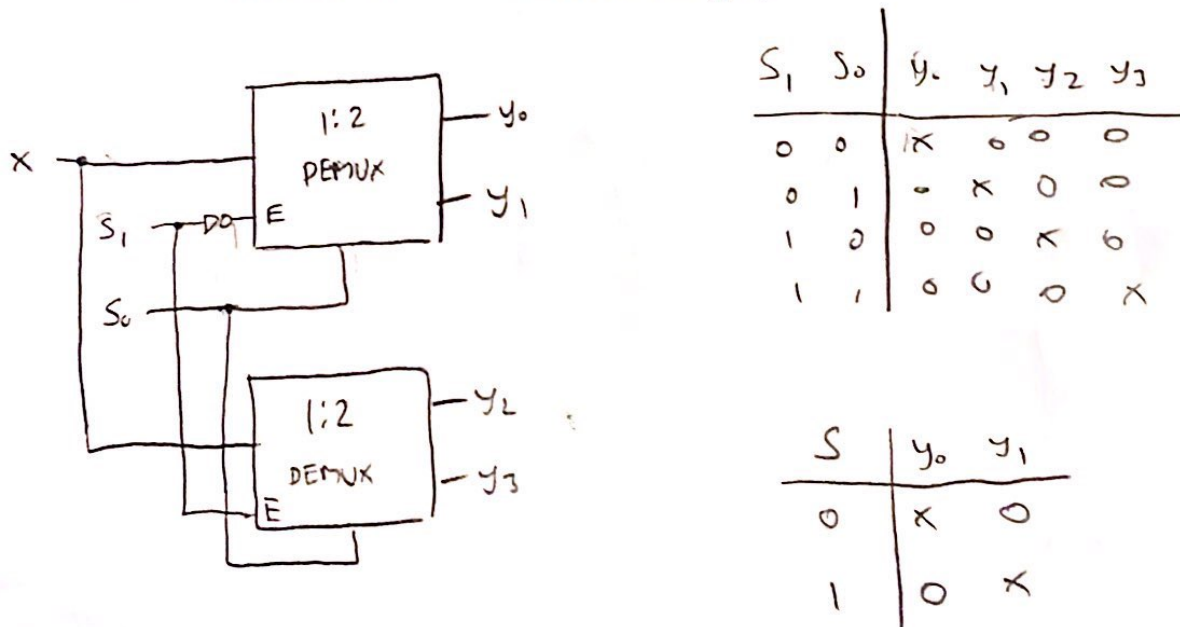 1:2
DEMUX
X
E
S1
S0
y0
y1
1:2
DEMUX
E
y2
y3
S1 S0 y0 y1 y2 y3
0 0 X 0 0 0
0 1 0 X 0 0
1 0 0 0 X 0
1 1 0 0 0 X
S y0 y1
0 X 0
1 0 X